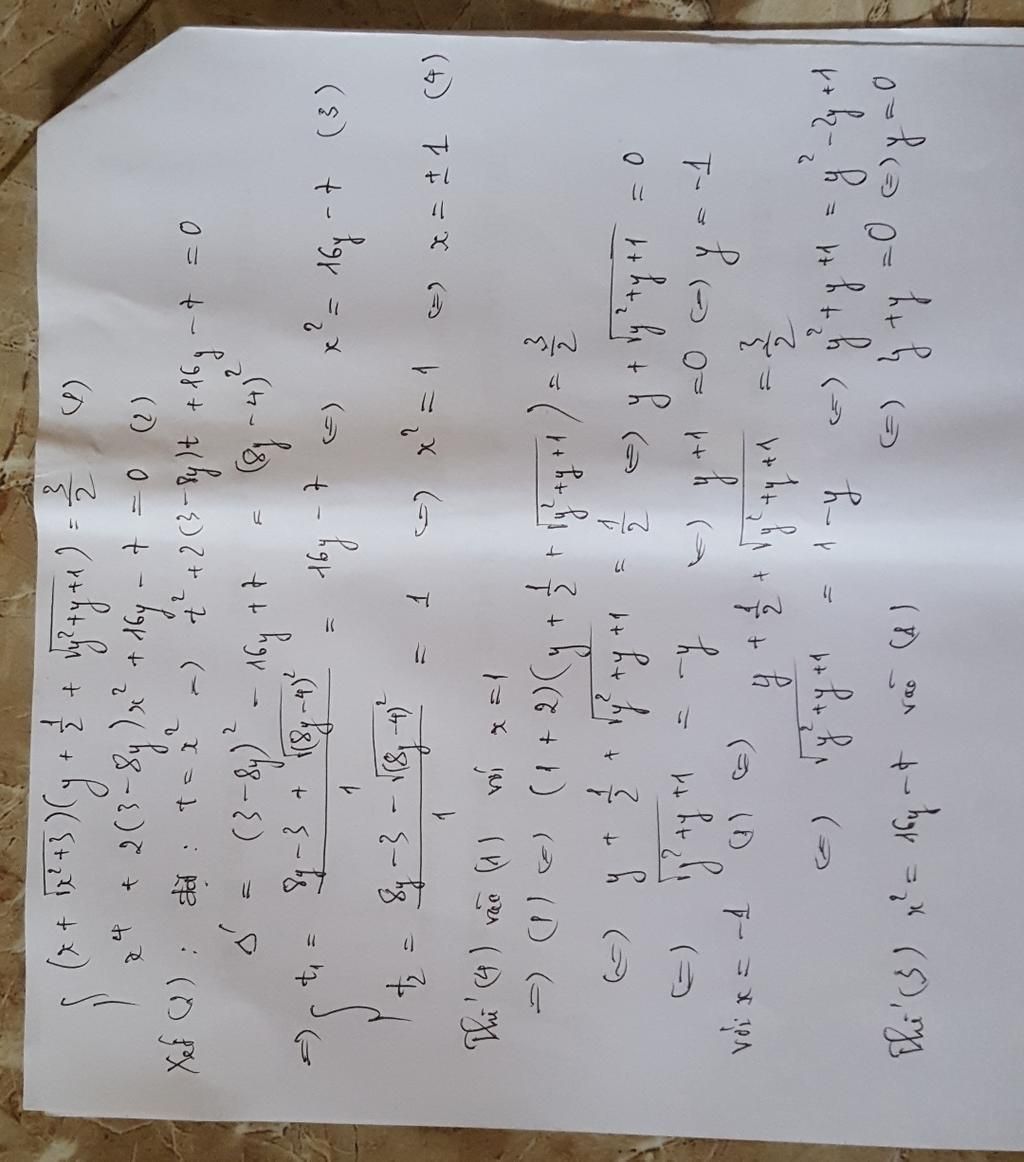 { (x + √(x²+3))(y + 1/2 + √(y²+y+1)) = 3/2 (1)
x⁴ + 2(3-8y)x² + 16y - 7 = 0 (2)
Xét (2): đặt: t = x² => t² + 2(3-8y)t + 16y - 7 = 0
Δ' = (3-8y)² - 16y + 7 = (8y-4)²
=> { t₁ = (8y-3 + √(8y-4)²)/1 = 16y - 7 <=> x² = 16y - 7 (3)
t₂ = (8y-3 - √(8y-4)²)/1 = 1 <=> x² = 1 <=> x = ±1 (4)
Thế (4) vào (1) với x = 1
=> (1) <=> (1+2)(y + 1/2 + √(y²+y+1)) = 3/2
<=> y + 1/2 + √(y²+y+1) = 1/2 <=> y + √(y²+y+1) = 0
<=> √(y²+y+1) = -y <=> y+1 = 0 <=> y = -1
với x = -1 (1) <=> y + 1/2 + √(y²+y+1) = 3/2
<=> √(y²+y+1) = 1-y <=> y²+y+1 = y²-2y+1
<=> 3y = 0 <=> y = 0
Thế (3) x² = 16y - 7 vào (1)